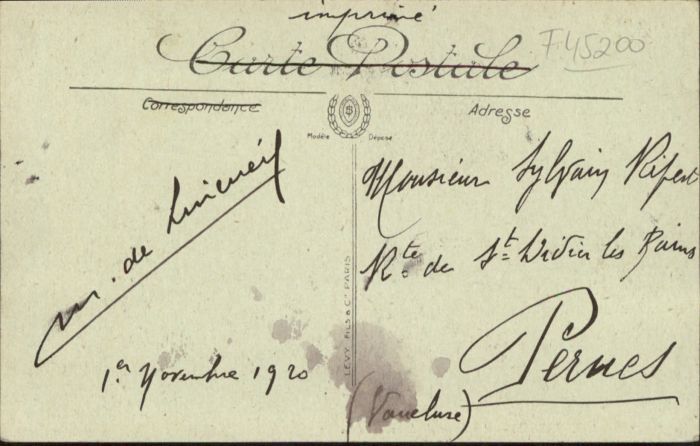 imprimé
Carte Postale
F45200
Correspondance
Adresse
Modèle Déposé
Monsieur Sylvain Ripert
Rte de St Didier les Bains
Pernes
(Vaucluse)
M. de
1er Novembre 1920
LEVY FILS & Cie PARIS